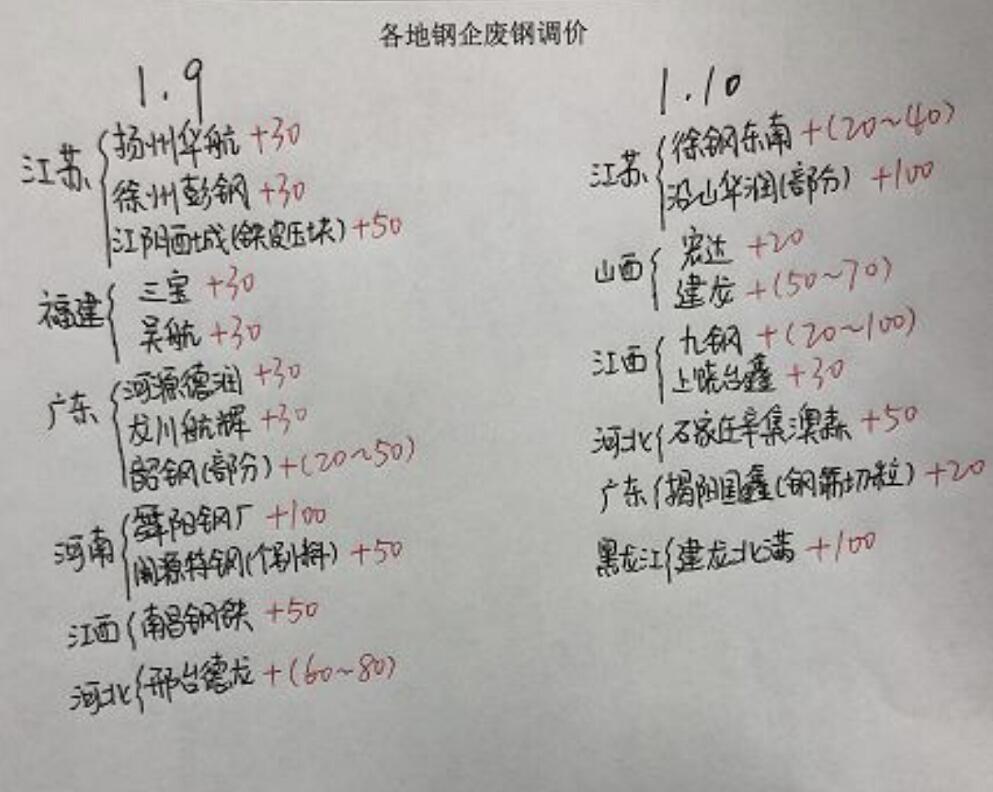 各地钢企废钢调价
1.9
江苏 { 扬州华航 +30
徐州彭钢 +30
江阴西城(铁皮压块) +50
福建 { 三宝 +30
吴航 +30
广东 { 河源德润 +30
龙川航辉 +30
韶钢(部分) +(20~50)
河南 { 舞阳钢厂 +100
闽源特钢(个别料) +50
江西 { 南昌钢铁 +50
河北 { 邢台德龙 +(60~80)
1.10
江苏 { 徐钢东南 +(20~40)
沿山华润(部分) +100
山西 { 宏达 +20
建龙 +(50~70)
江西 { 九钢 +(20~100)
上饶台鑫 +30
河北 { 石家庄辛集澳森 +50
广东 { 揭阳国鑫(钢筋切粒) +20
黑龙江 { 建龙北满 +100